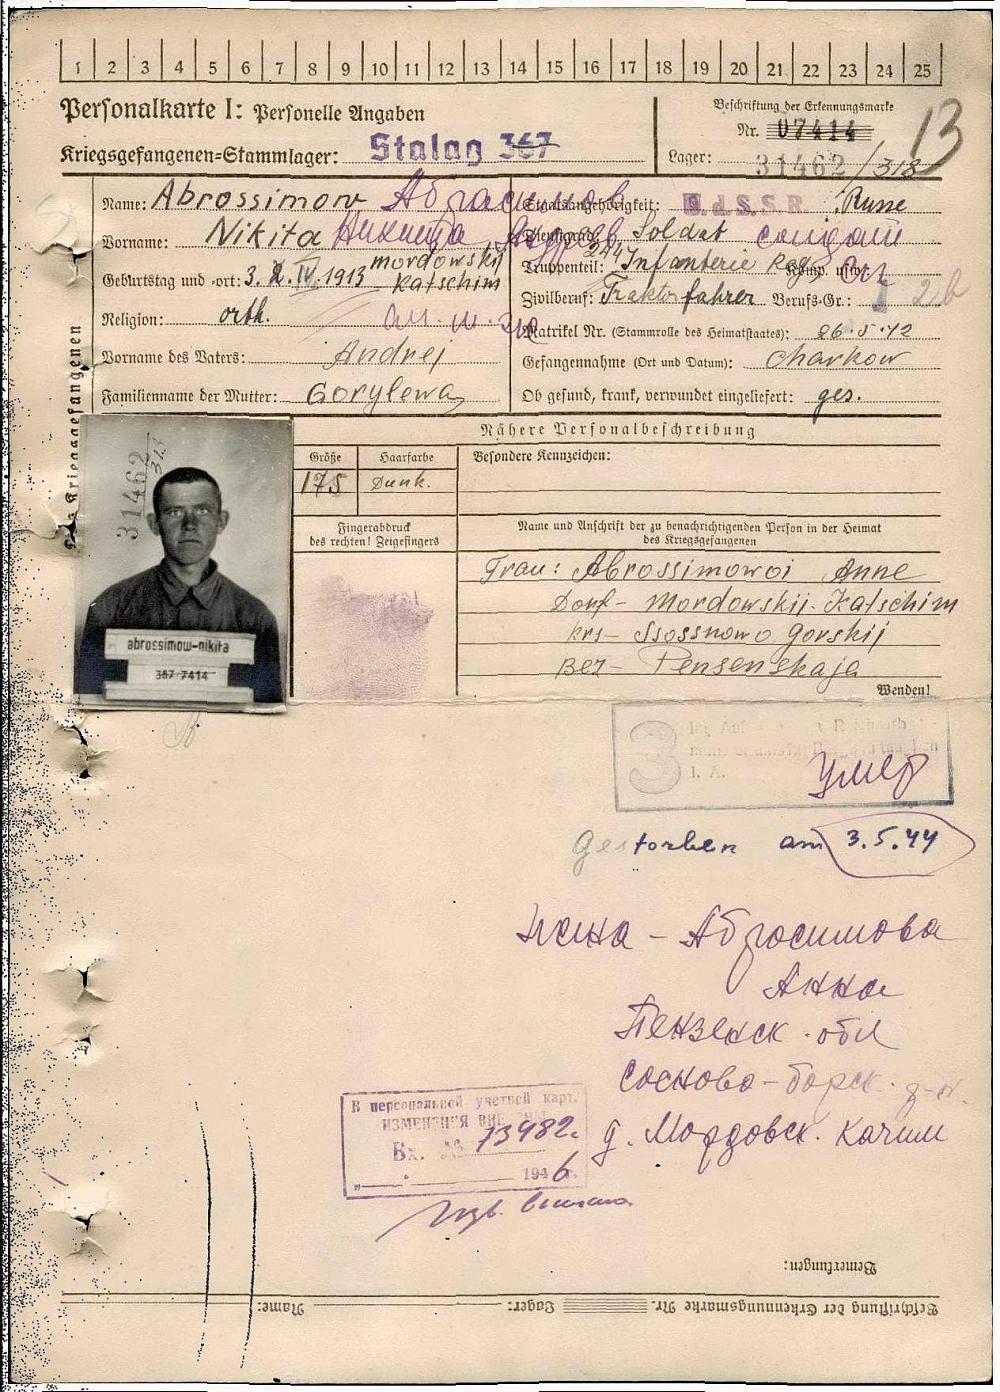 1 2 3 4 5 6 7 8 9 10 11 12 13 14 15 16 17 18 19 20 21 22 23 24 25
Personalkarte I: Personelle Angaben
Kriegsgefangenen=Stammlager: Stalag 367
Beschriftung der Erkennungsmarke
Nr. 07414
Lager: 31462/318
13
Name: Abrossimow Абросимов
Vorname: Nikita Никита
Geburtstag und =ort: 3. IV. 1913 mordowskij Katschim
Religion: orth.
Vorname des Vaters: Andrej
Familienname der Mutter: Gorylewa
Staatsangehörigkeit: U.d.S.S.R. Russe
Dienstgrad: Soldat солдат
Truppenteil: 244 Infanterie Reg. Komp. usw.:
Zivilberuf: Traktorfahrer Berufs=Gr.:
Matrikel Nr. (Stammrolle des Heimatstaates): 26.5.42
Gefangennahme (Ort und Datum): Charkow
Ob gesund, krank, verwundet eingeliefert: ges.
Kriegsgefangenen
Nähere Personalbeschreibung
Größe Haarfarbe Besondere Kennzeichen:
175 Dunk.
31462
318
abrossimow-nikita
367 7414
Fingerabdruck
des rechten! Zeigefingers
Name und Anschrift der zu benachrichtigenden Person in der Heimat
des Kriegsgefangenen
Frau: Abrossimowoi Anne
Dorf- Mordowskij-Katschim
krs- Ssossnowo Gorskij
Bez- Pensenskaja
Wenden!
3
I. A.
умер
Gestorben am 3.5.44
Жена - Абросимова
Анна
Пензенск. обл
Сосново-борск. р-н.
д. Мордовск. Качим
В персональной учетной карт.
ИЗМЕНЕНИЯ ВНЕСЕНЫ
Вх. № 73482
1946 г.
Bemerkungen:
Beschriftung der Erkennungsmarke Nr. Lager: Name: